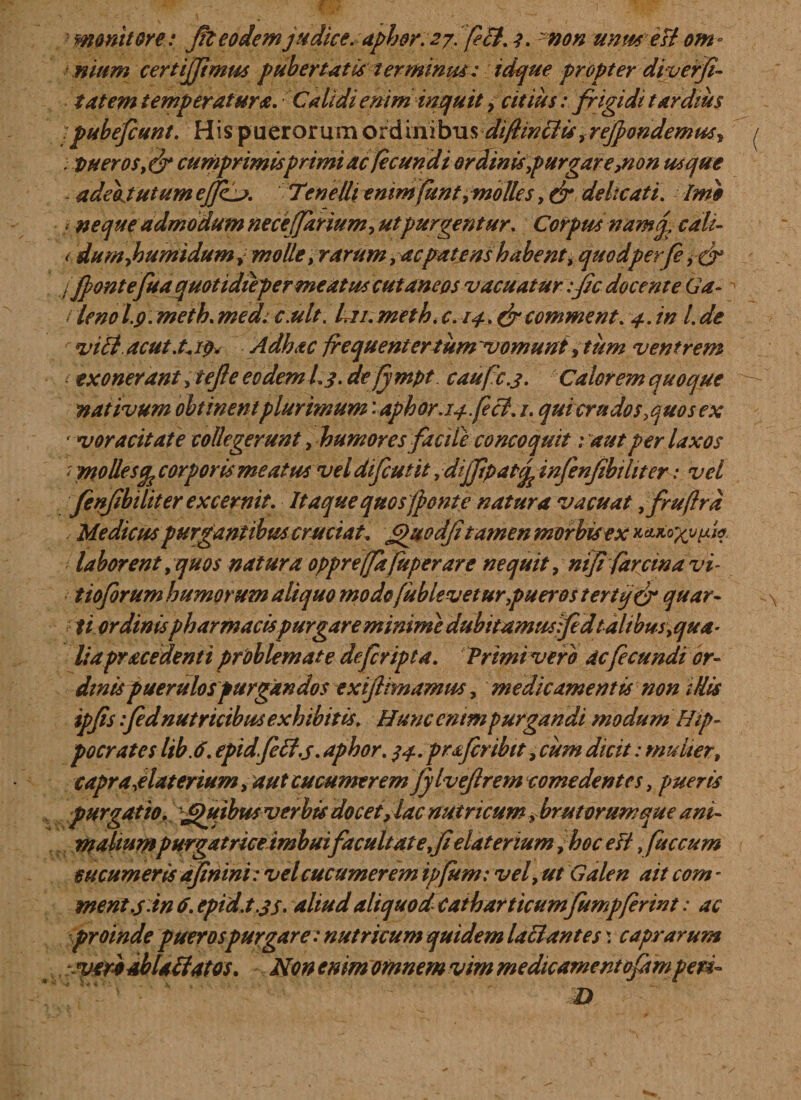 monitore: sit eodem judice. aphor. 27. sect. 3. non unus est om-
nium certissimus pubertatis terminus: idque propter diversi-
tatem temperaturæ. Calidi enim inquit, citius: frigidi tardius
pubescunt. His puerorum ordinibus distinctis, respondemus,
pueros, & cumprimis primi ac secundi ordinis, purgare, non usque
adeò tutum esse. Tenelli enim sunt, molles, & delicati. Imò
neque admodum necessarium, ut purgentur. Corpus namq; cali-
dum, humidum, molle, rarum, ac patens habent, quod per se, &
sponte sua quotidiè per meatus cutaneos vacuatur: sic docente Ga-
leno l. 9. meth. med. c. ult. l. 11. meth. c. 14. & comment. 4. in l. de
vict. acut. t. 19. Ad hæc frequenter tùm vomunt, tùm ventrem
exonerant, teste eodem l. 3. de sympt. caus. c. 3. Calorem quoque
nativum obtinent plurimum: aphor. 14. sect. 1. qui crudos, quos ex
voracitate collegerunt, humores facilè concoquit: aut per laxos
mollesq; corporis meatus vel discutit, dissipatq; insensibiliter: vel
sensibiliter excernit. Itaque quos sponte natura vacuat, frustrà
Medicus purgantibus cruciat. Quod si tamen morbis ex κακοχυμίᾳ
laborent, quos natura oppressa superare nequit, nisi sarcina vi-
tiosorum humorum aliquo modo sublevetur, pueros tertij & quar-
ti ordinis pharmacis purgare minimè dubitamus: sed talibus, qua-
lia præcedenti problemate descripta. Primi verò ac secundi or-
dinis puerulos purgandos existimamus, medicamentis non illis
ipsis: sed nutricibus exhibitis. Hunc enim purgandi modum Hip-
pocrates lib. 6. epid. sect. 5. aphor. 34. præscribit, cùm dicit: mulier,
capra, elaterium, aut cucumerem sylvestrem comedentes, pueris
purgatio. Quibus verbis docet, lac nutricum, brutorumque ani-
malium purgatrice imbui facultate, si elaterium, hoc est, succum
cucumeris asinini: vel cucumerem ipsum: vel, ut Galen ait com-
ment. 5. in 6. epid. t. 35. aliud aliquod catharticum sumpserint: ac
proinde pueros purgare: nutricum quidem lactantes: caprarum
verò ablactatos. Non enim omnem vim medicamentosam peni-
D